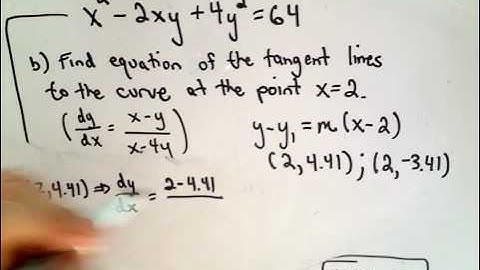 x² - 2xy + 4y² = 64
b) Find equation of the tangent lines
to the curve at the point x=2.
(dy/dx = x-y/x-4y)
y-y₁ = m(x-2)
(2, 4.41) ; (2, -3.41)
, 4.41) ⇒ dy/dx = 2-4.41